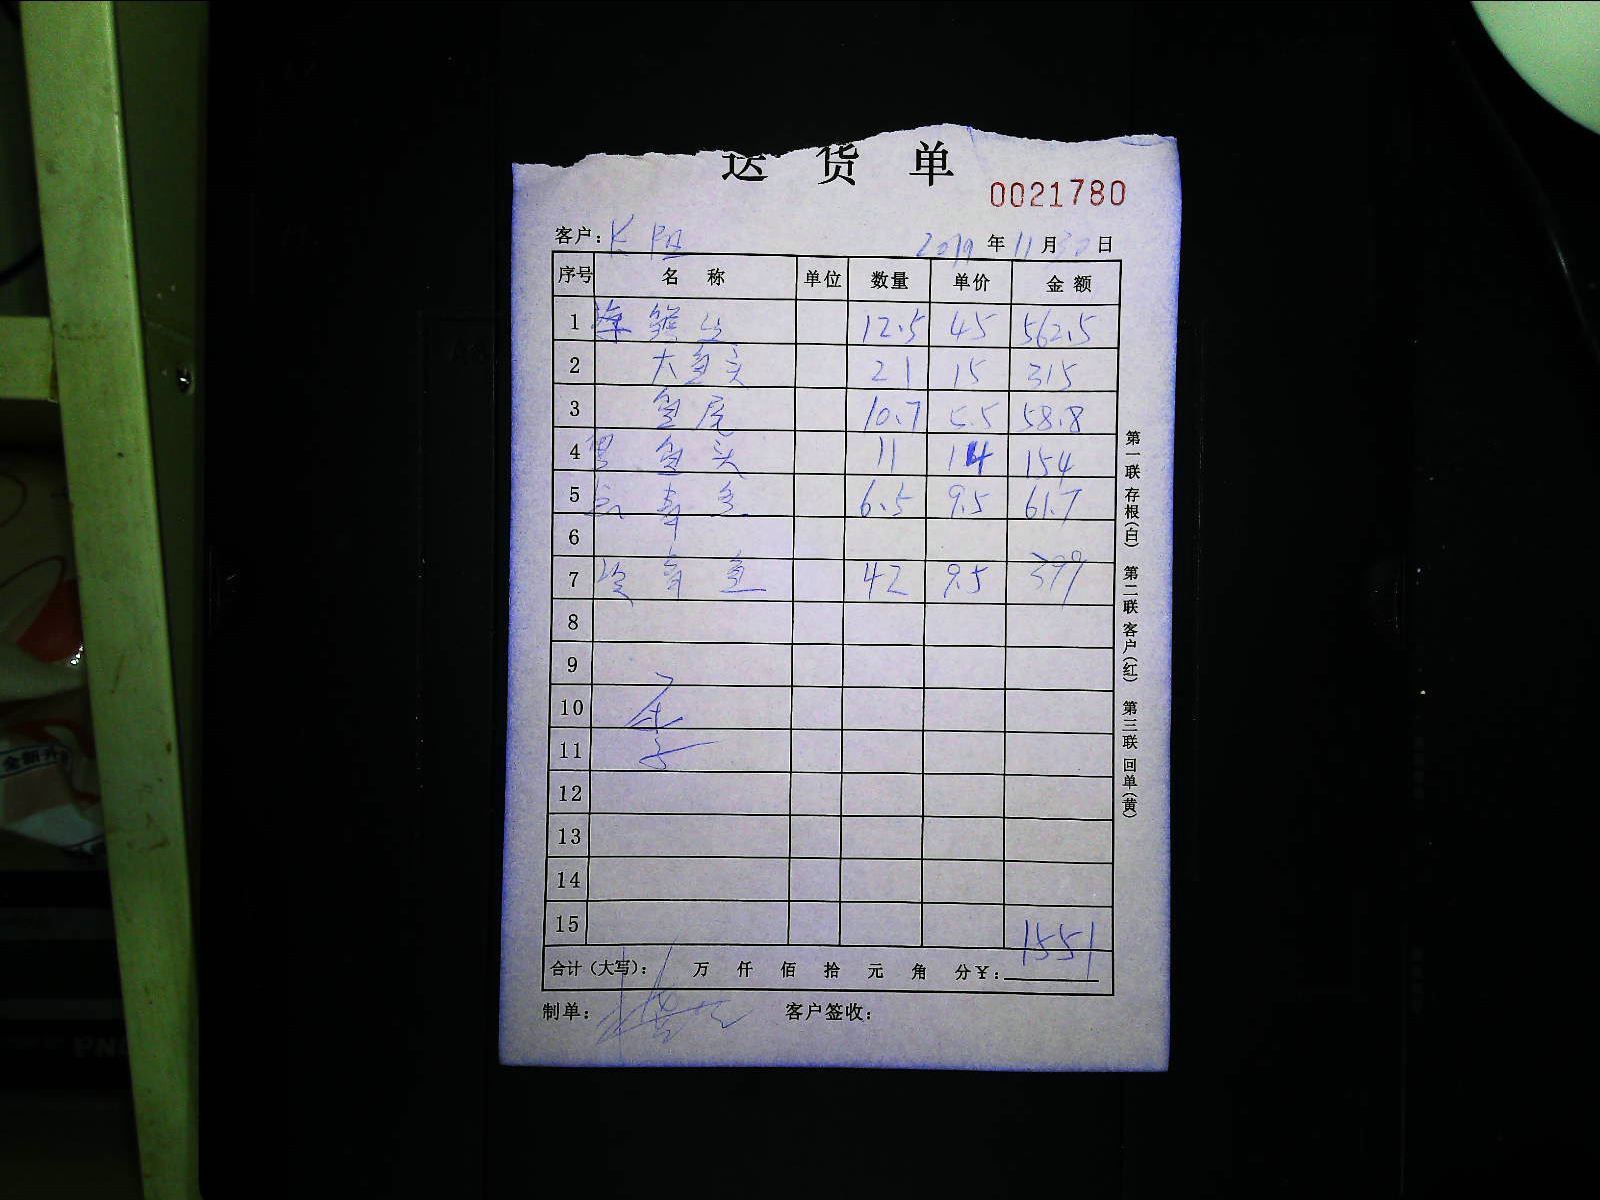 送货单
0021780
客户: 2019年11月30日
序号 名称 单位 数量 单价 金额
1 12.5 45 562.5
2 大鱼头 21 15 315
3 鱼尾 10.7 5.5 58.8
4 鱼头 11 14 154
5 寿鱼 6.5 9.5 61.7
6
7 鱼 42 9.5 399
8
9
10
11
12
13
14
15 1551
合计(大写): 万 仟 佰 拾 元 角 分¥:
制单: 客户签收:
第一联 存根(白) 第二联 客户(红) 第三联 回单(黄)